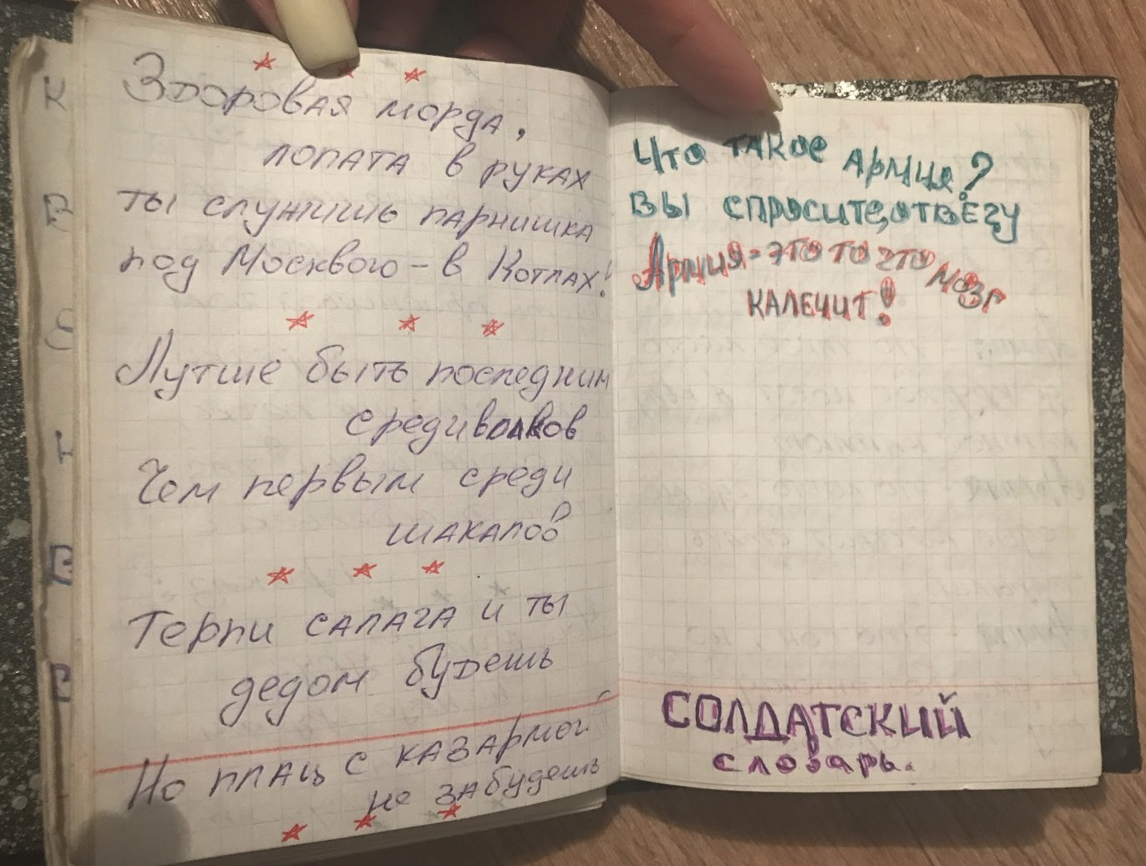 * * *
Здоровая морда,
лопата в руках
ты служишь парнишка
под Москвого - в Котлах!
* * *
Лутше быть последним
среди волков
Чем первым среди
шакалов
* * *
Терпи салага и ты
дедом будешь
Но плац с казармой
не забудешь
* * *
Что такое Армия?
Вы спросите, отвечу
Армия - это то что мозг
калечит!
СОЛДАТСКИЙ
словарь.